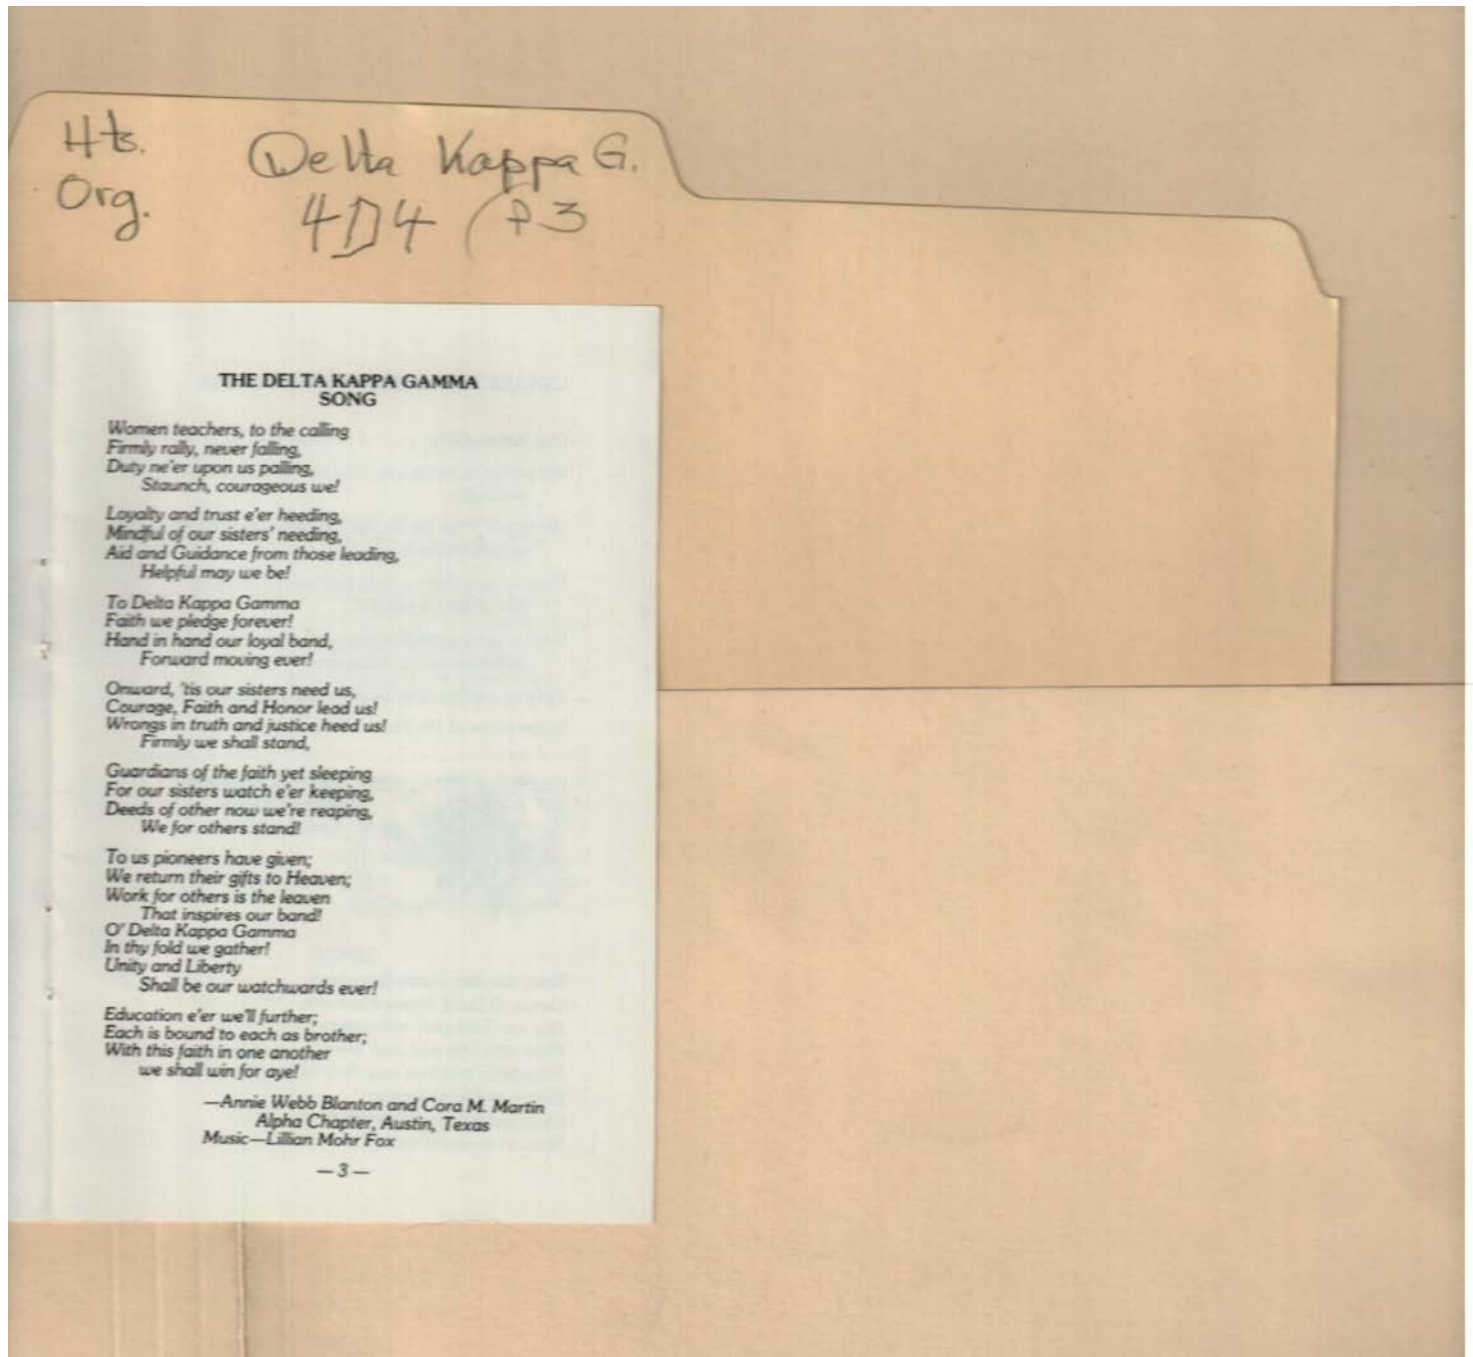 Hts. Delta Kappa G.
Org. 4D4 (P3
THE DELTA KAPPA GAMMA
SONG
Women teachers, to the calling
Firmly rally, never falling,
Duty ne'er upon us palling,
Staunch, courageous we!
Loyalty and trust e'er heeding,
Mindful of our sisters' needing,
Aid and Guidance from those leading,
Helpful may we be!
To Delta Kappa Gamma
Faith we pledge forever!
Hand in hand our loyal band,
Forward moving ever!
Onward, 'tis our sisters need us,
Courage, Faith and Honor lead us!
Wrongs in truth and justice heed us!
Firmly we shall stand,
Guardians of the faith yet sleeping
For our sisters watch e'er keeping,
Deeds of other now we're reaping,
We for others stand!
To us pioneers have given;
We return their gifts to Heaven;
Work for others is the leaven
That inspires our band!
O' Delta Kappa Gamma
In thy fold we gather!
Unity and Liberty
Shall be our watchwards ever!
Education e'er we'll further;
Each is bound to each as brother;
With this faith in one another
we shall win for aye!
—Annie Webb Blanton and Cora M. Martin
Alpha Chapter, Austin, Texas
Music—Lillian Mohr Fox
— 3 —